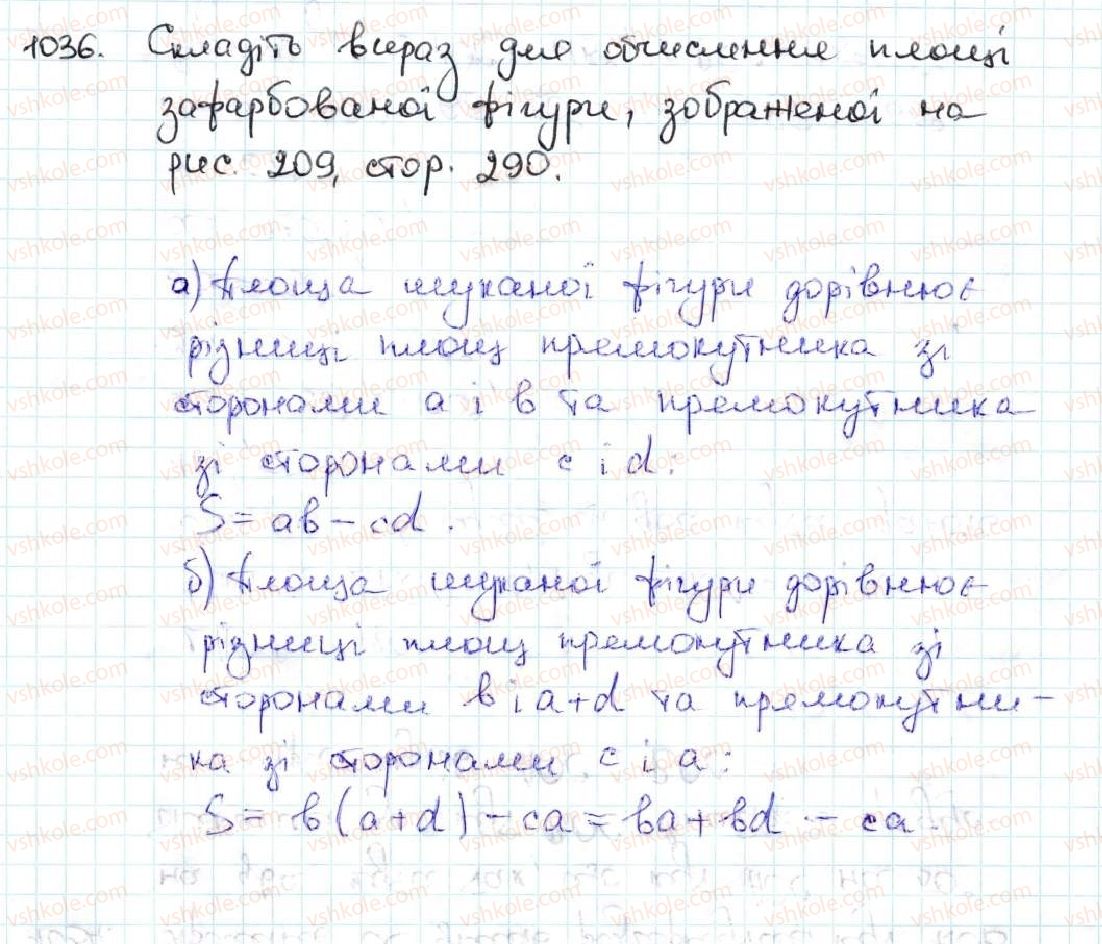 1036. Складіть вираз для обчислення площі
зафарбованої фігури, зображеної на
рис. 209, стор. 290.
а) Площа шуканої фігури дорівнює
різниці площ прямокутника зі
сторонами a і b та прямокутника
зі сторонами c і d:
S = ab - cd.
б) Площа шуканої фігури дорівнює
різниці площ прямокутника зі
сторонами b і a+d та прямокутни-
ка зі сторонами c і a:
S = b(a+d) - ca = ba + bd - ca.